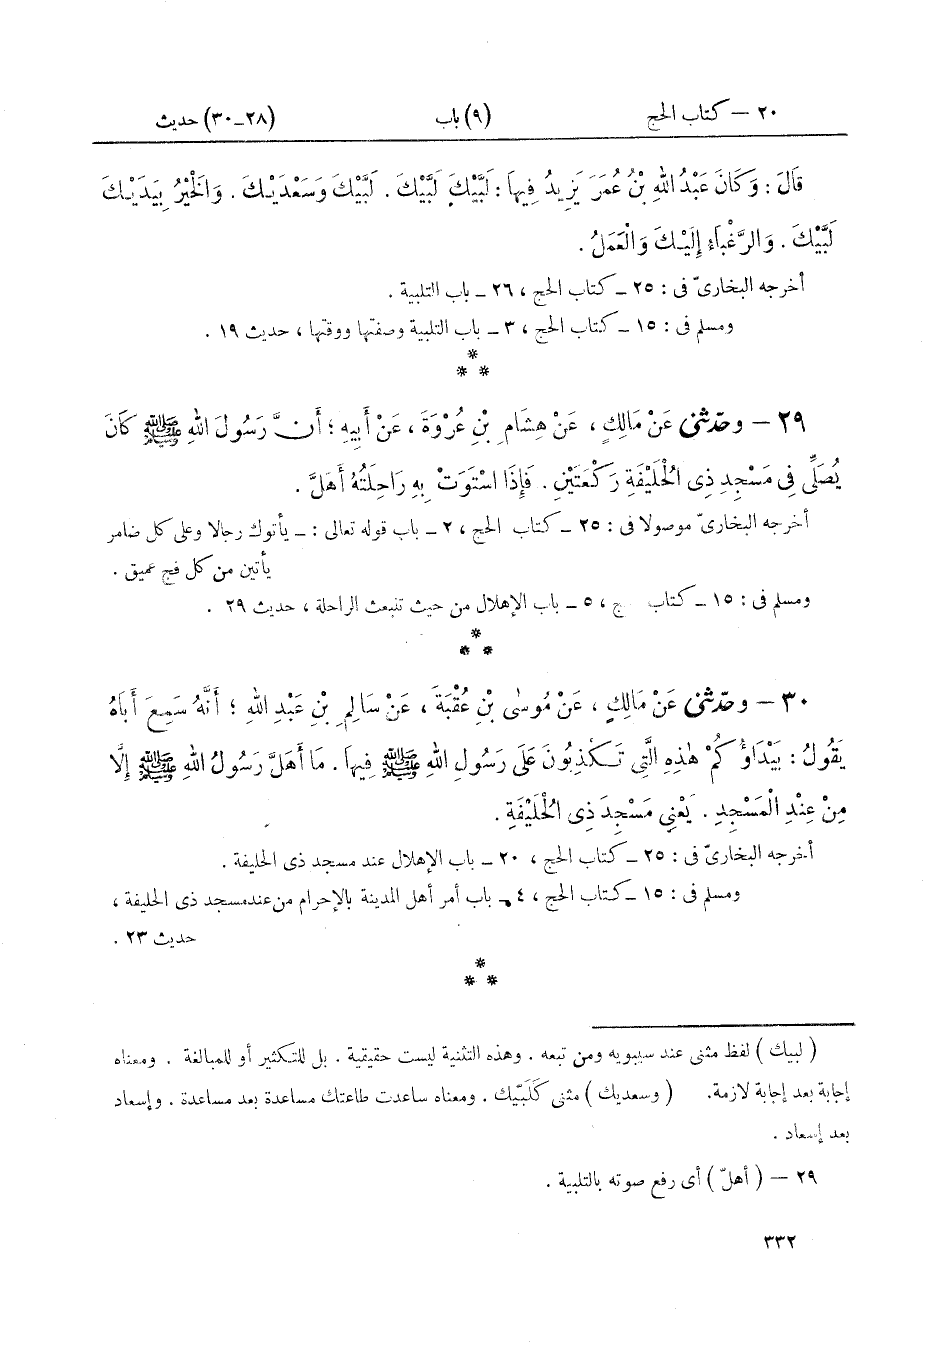 ٢٠ – كتاب الحج (٩) باب (٢٨–٣٠) حديث
قَالَ : وَكَانَ عَبْدُ اللهِ بْنُ عُمَرَ يَزِيدُ فِيهَا : لَبَّيْكَ لَبَّيْكَ . لَبَّيْكَ وَسَعْدَيْكَ . وَالْخَيْرُ بِيَدَيْكَ
لَبَّيْكَ . وَالرَّغْبَاءُ إِلَيْكَ وَالْعَمَلُ .
أخرجه البخارىّ فى : ٢٥ – كتاب الحج ، ٢٦ – باب التلبية .
ومسلم فى : ١٥ – كتاب الحج ، ٣ – باب التلبية وصفتها ووقتها ، حديث ١٩ .
*
* *
٢٩ – وحدّثنى عَنْ مَالِكٍ ، عَنْ هِشَامِ بْنِ عُرْوَةَ ، عَنْ أَبِيهِ ؛ أَنَّ رَسُولَ اللهِ ﷺ كَانَ
يُصَلِّى فِى مَسْجِدِ ذِى الْحُلَيْفَةِ رَكْعَتَيْنِ . فَإِذَا اسْتَوَتْ بِهِ رَاحِلَتُهُ أَهَلَّ .
أخرجه البخارىّ موصولا فى : ٢٥ – كتاب الحج ، ٢ – باب قوله تعالى : – يأتوك رجالا وعلى كل ضامر
يأتين من كل فج عميق .
ومسلم فى : ١٥ – كتاب ج ، ٥ – باب الإهلال من حيث تنبعث الراحلة ، حديث ٢٩ .
*
* *
٣٠ – وحدّثنى عَنْ مَالِكٍ ، عَنْ مُوسَى بْنِ عُقْبَةَ ، عَنْ سَالِمِ بْنِ عَبْدِ اللهِ ؛ أَنَّهُ سَمِعَ أَبَاهُ
يَقُولُ : بَيْدَاؤُكُمْ هٰذِهِ الَّتِى تَكْذِبُونَ عَلَى رَسُولِ اللهِ ﷺ فِيهَا . مَا أَهَلَّ رَسُولُ اللهِ ﷺ إِلَّا
مِنْ عِنْدِ الْمَسْجِدِ . يَعْنِى مَسْجِدَ ذِى الْحُلَيْفَةِ .
أخرجه البخارىّ فى : ٢٥ – كتاب الحج ، ٢٠ – باب الإهلال عند مسجد ذى الحليفة .
ومسلم فى : ١٥ – كتاب الحج ، ٤ – باب أمر أهل المدينة بالإحرام من عند مسجد ذى الحليفة ،
حديث ٢٣ .
*
* *
( لبيك ) لفظ مثنى عند سيبويه ومن تبعه . وهذه التثنية ليست حقيقية . بل للتكثير أو للمبالغة . ومعناه
إجابة بعد إجابة لازمة . ( وسعديك ) مثنى كَلَبَّيْك . ومعناه ساعدت طاعتك مساعدة بعد مساعدة . وإسعاد
بعد إسعاد .
٢٩ – ( أهلّ ) أى رفع صوته بالتلبية .
٣٣٢